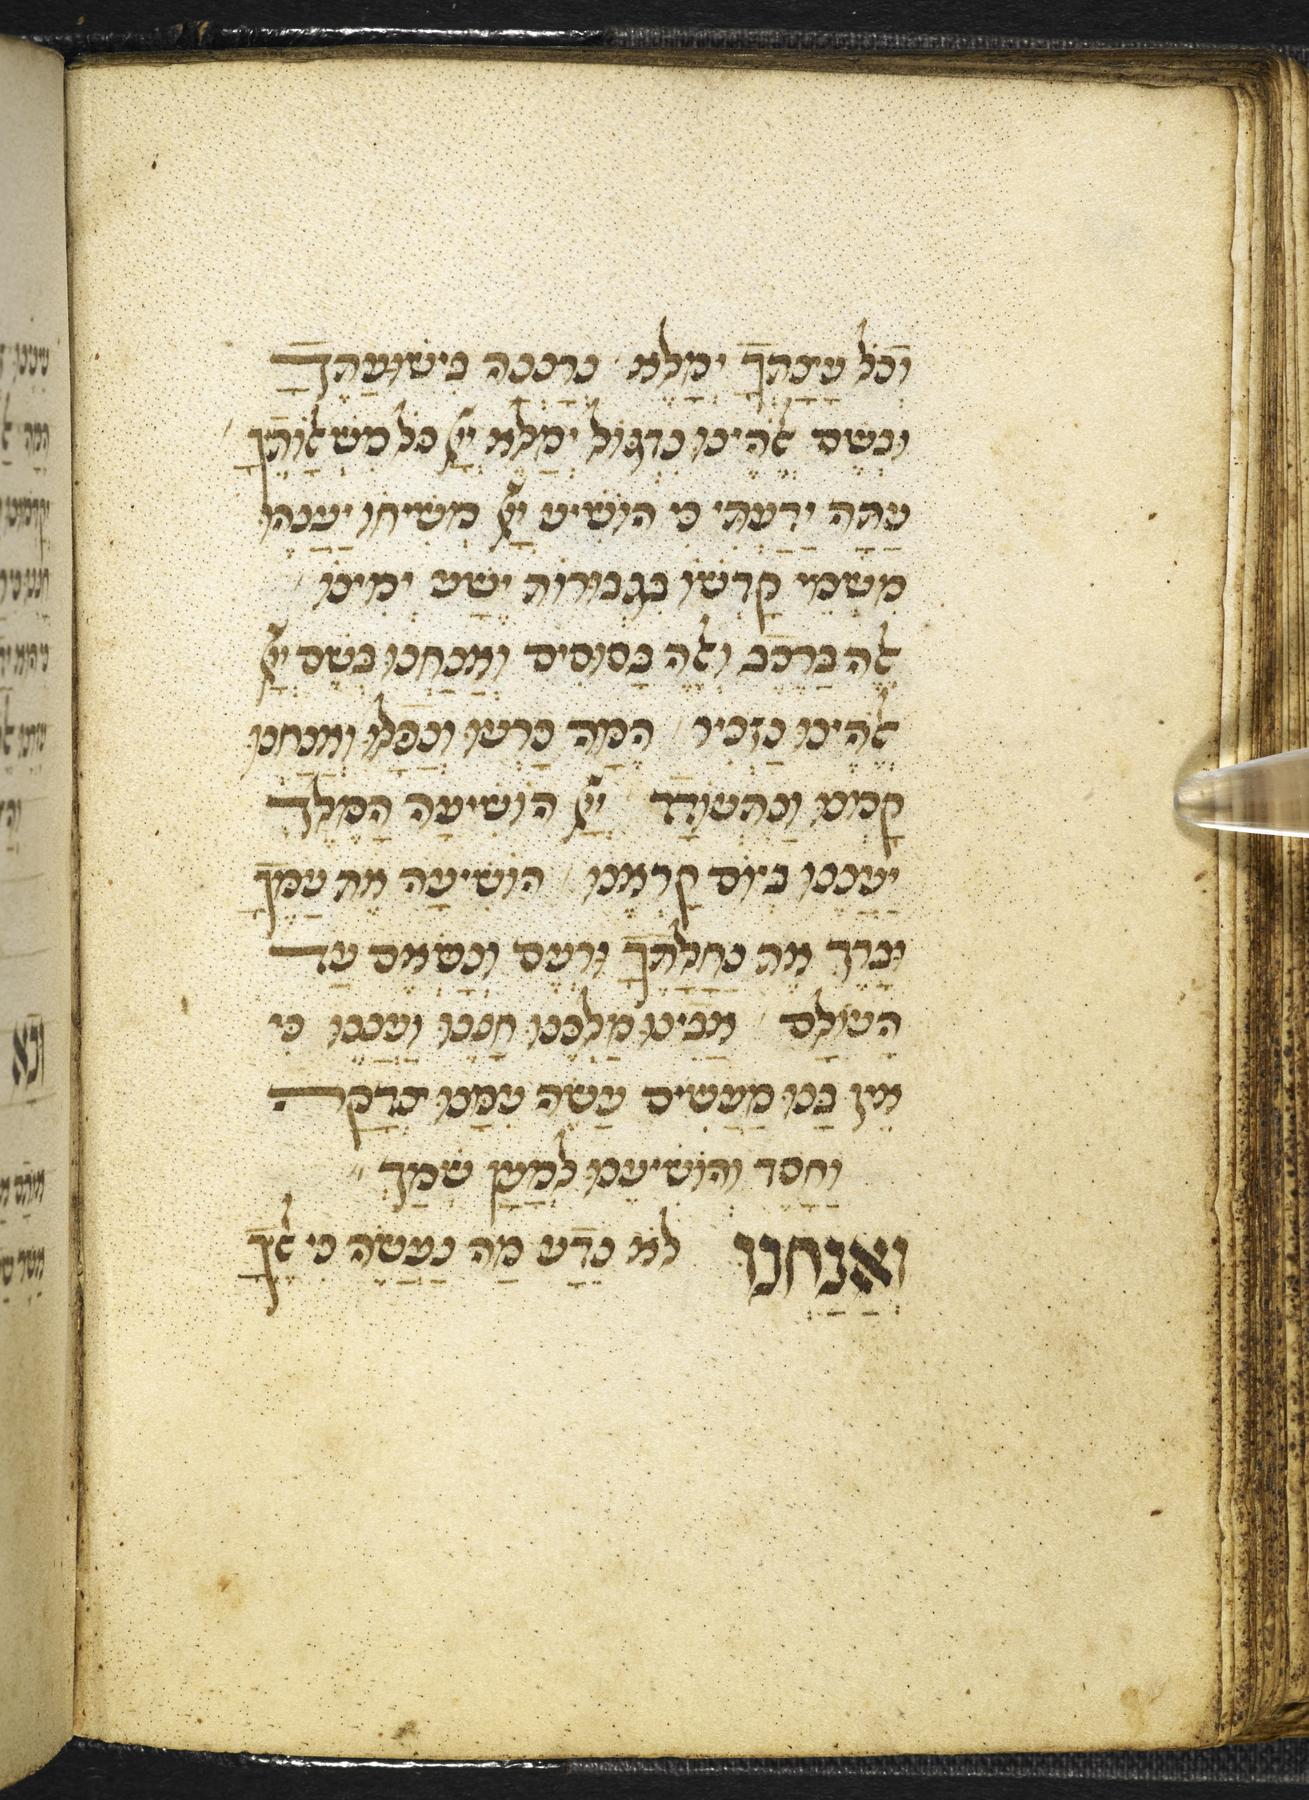 וכל עצתך ימלא נרננה בישועתך
ובשם אלהינו נדגול ימלא ייי כל משאלותיך
עתה ידעתי כי הושיע ייי משיחו יענהו
משמי קדשו בגבורות ישע ימינו
אלה ברכב ואלה בסוסים ואנחנו בשם ייי
אלהינו נזכיר המה כרעו ונפלו ואנחנו
קמנו ונתעודד ייי הושיעה המלך
יעננו ביום קראנו הושיעה את עמך
וברך את נחלתך ורעם ונשאם עד
העולם אבינו מלכנו חננו ועננו כי
אין בנו מעשים עשה עמנו צדקה
וחסד והושיענו למען שמך
ואנחנו לא נדע מה נעשה כי אליך